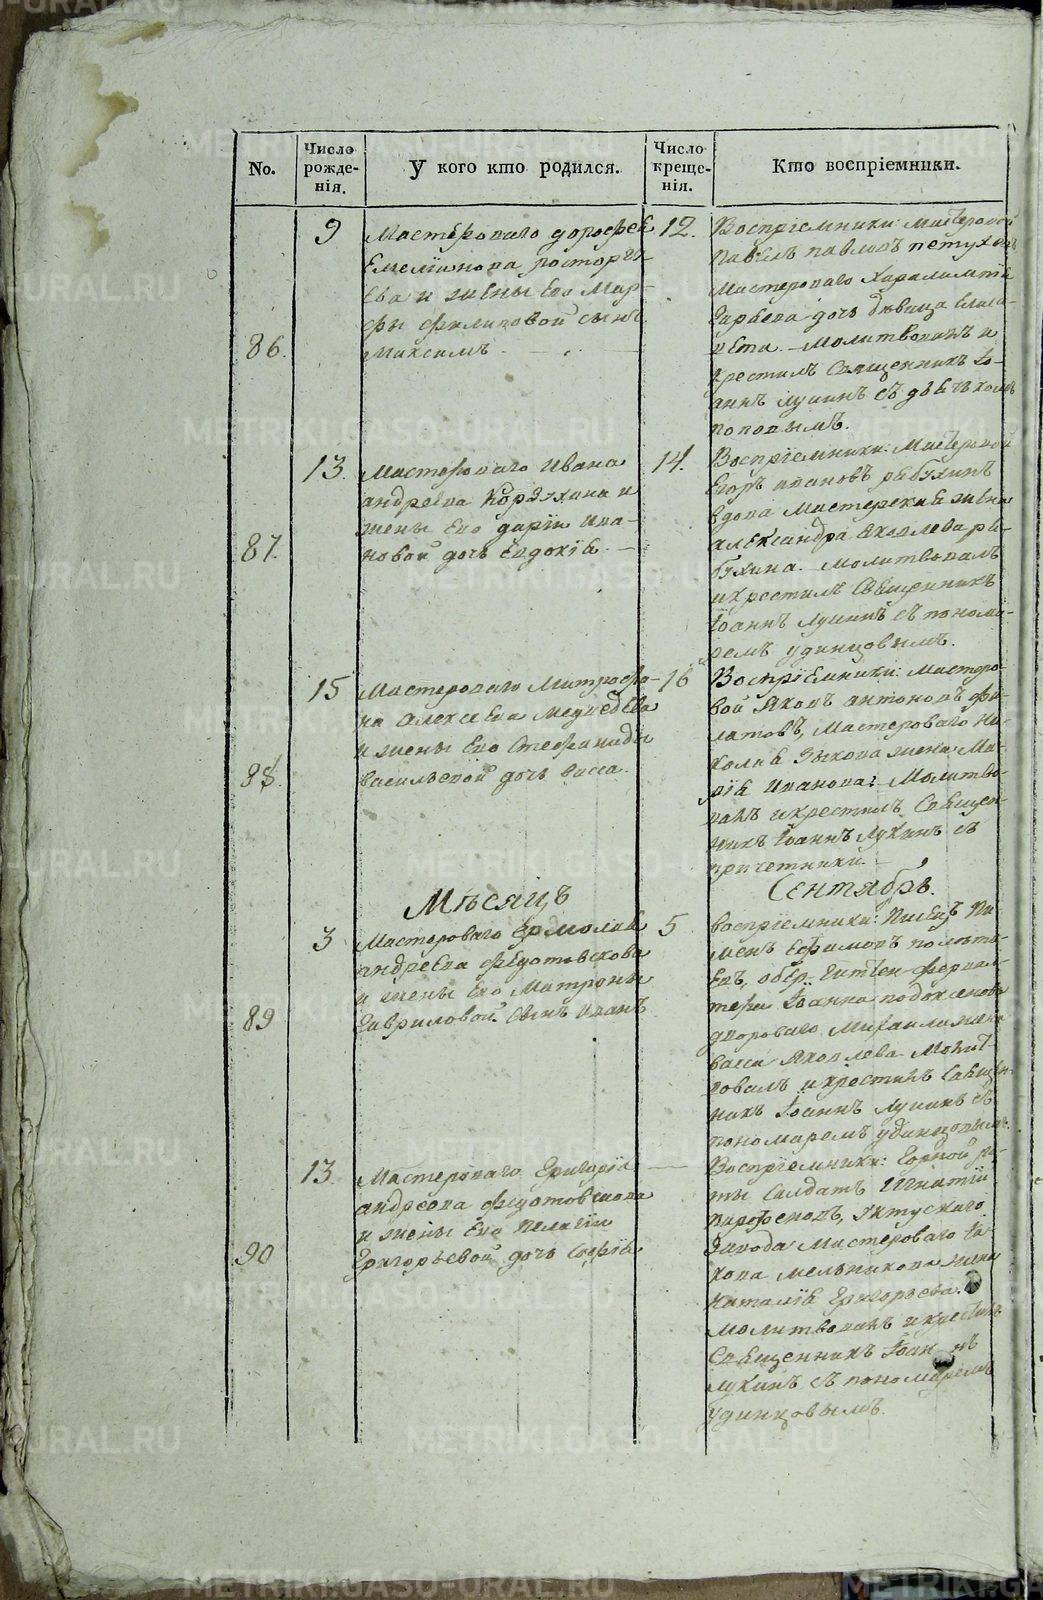 No.
Число рожде-нія.
У кого кто родился.
Число креще-нія.
Кто воспріемники.
86.
9
Мастероваго дорофея
Емелянова расторгу
ева и жены Его Мар-
фы филиповой сынъ
Максимъ
12.
Воспріемники: Мастеровой
павелъ павловъ петуховъ
Мастероваго Харалампія
дочь дѣвица Елиса-
вета. Молитвовалъ и
крестилъ Священникъ Іо-
аннъ лукинъ съ дьячкомъ
поповымъ.
87.
13.
Мастероваго Ивана
андреева Корзухина и
жены Его даріи Ива-
новой дочь Евдокія
14.
Воспріемники: Мастеровой
Егоръ ивановъ рябухинъ
вдова Мастерская жена
александра яковлева ря-
бухина. Молитвовалъ
и крестилъ Священникъ
Іоаннъ лукинъ съ понома-
ремъ удинцовымъ.
88.
15
Мастероваго Митрофа-
на алексеева Медведева
и жены Его Стефаниды
васильевой дочь васса.
16
Воспріемники: мастеро-
вой яковъ антоновъ фи-
латовъ, Мастероваго Ни-
колая Зыкова жена Ма-
рія Иванова. Молитво-
валъ и крестилъ Священ-
никъ Іоаннъ лукинъ съ
причетники
Мѣсяцъ
Сентябрь.
89
3
Мастероваго Ермолая
андреева федотовскова
и жены Его Матроны
Гавриловой. Сынъ Иванъ
5
воспріемники:
менъ Ефимовъ
Іоанна
двороваго Михаила жена
васса яковлева Молит-
вовалъ и крестилъ Священ-
никъ Іоаннъ лукинъ съ
пономаремъ удинцовымъ.
90
13.
Мастероваго Григорія
андреева федотовскова
и жены Его Пелагіи
Григорьевой дочь Софія
Воспріемники: Горной ро-
ты Солдатъ Игнатій
парфеновъ, Уктускаго
Завода Мастероваго Іа-
кова мельникова жена
наталія Григорьева.
молитвовалъ и крестилъ
Священникъ Іоаннъ
лукинъ съ пономаремъ
удинцовымъ.
METRIKI.GASO-URAL.RU